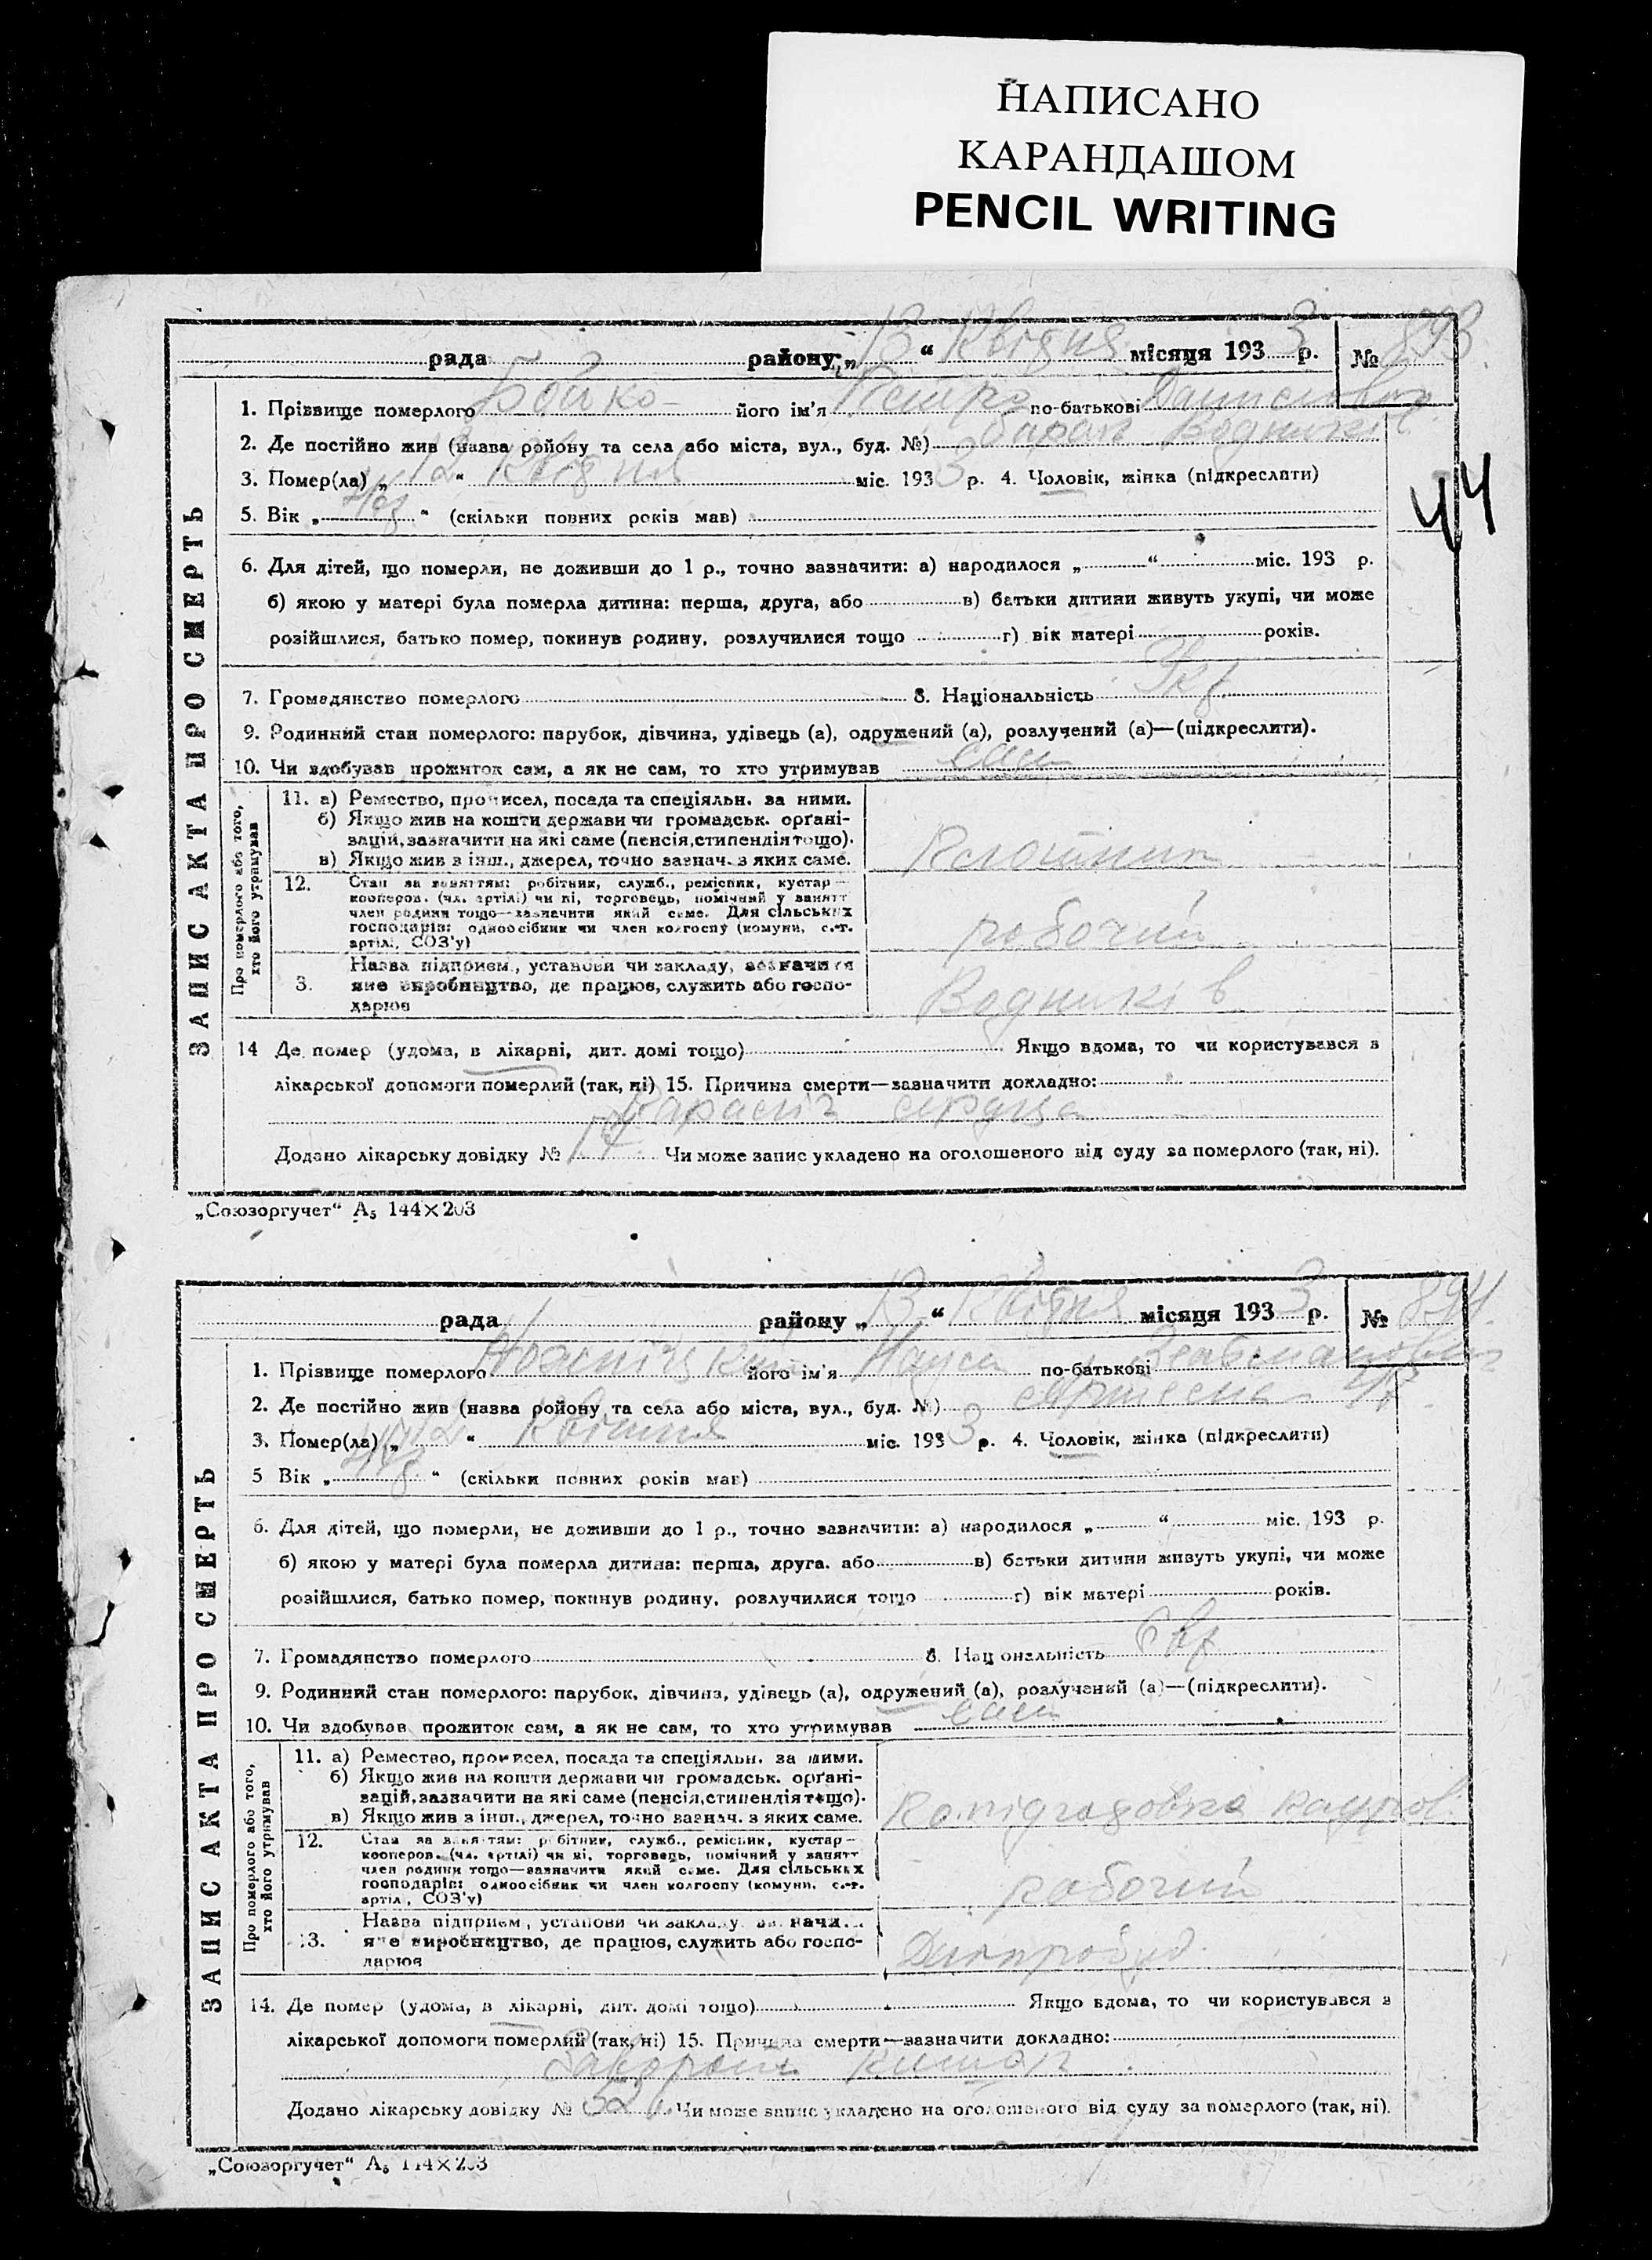 НАПИСАНО
КАРАНДАШОМ
PENCIL WRITING
рада района „13“ Квітня місяця 1933 р. № 893
1. Прізвище померлого Бойко його ім'я Петро по-батькові Данилович
2. Де постійно жив (назва ройону та села або міста, вул., буд. №) барак Водників
3. Помер(ла) „12“ Квітня міс. 1933 р. 4. Чоловік, жінка (підкреслити)
5. Вік „ “ (скільки повних років мав)
6. Для дітей, що померли, не доживши до 1 р., точно зазначити: а) народилося „ “ міс. 193 р.
б) якою у матері була померла дитина: перша, друга, або в) батьки дитини живуть укупі, чи може
розійшлися, батько помер, покинув родину, розлучилися тощо г) вік матері років.
7. Громадянство померлого 8. Національність Укр
9. Родинний стан померлого: парубок, дівчина, удівець (а), одружений (а), розлучений (а)—(підкреслити).
10. Чи здобував прожиток сам, а як не сам, то хто утримував сам
ЗАПИС АКТА ПРО СМЕРТЬ
Про померлого або того, хто його утримував
11. а) Ремество, промисел, посада та спеціяльн. за ними.
б) Якщо жив на кошти держави чи громадськ. орґані-
зацій, зазначити на які саме (пенсія, стипендія тощо).
в) Якщо жив з інш., джерел, точно зазнач. з яких саме.
12. Стан за заняттям: робітник, служб., ремісник, кустар—
кооперов. (чл. артілі) чи ні, торговець, помічний у занятт
член родини тощо—зазначити який саме. Для сільських
господарів: одноосібник чи член колгоспу (комуни, с.-г.
артілі, СОЗ'у) робочий
3. Назва підприєм., установи чи закладу, зазначити
яке виробництво, де працює, служить або госпо-
дарює Водників
14 Де помер (удома, в лікарні, дит. домі тощо) Якщо вдома, то чи користувався з
лікарської допомоги померлий (так, ні) 15. Причина смерти—зазначити докладно:
параліч серця
Додано лікарську довідку № Чи може запис укладено на оголошеного від суду за померлого (так, ні).
„Союзоргучет“ А₅ 144×203
44
рада району „13“ Квітня місяця 1933 р. № 894
1. Прізвище померлого його ім'я по-батькові
2. Де постійно жив (назва ройону та села або міста, вул., буд. №)
3. Помер(ла) „12“ Квітня міс. 1933 р. 4. Чоловік, жінка (підкреслити)
5 Вік „ “ (скільки повних років мав)
6. Для дітей, що померли, не доживши до 1 р., точно зазначити: а) народилося „ “ міс. 193 р.
б) якою у матері була померла дитина: перша, друга. або в) батьки дитини живуть укупі, чи може
розійшлися, батько помер, покинув родину, розлучилися тощо г) вік матері років.
7. Громадянство померлого 8. Національність Євр
9. Родинний стан померлого: парубок, дівчина, удівець (а), одружений (а), розлучений (а)—(підкреслити).
10. Чи здобував прожиток сам, а як не сам, то хто утримував сам
ЗАПИС АКТА ПРО СМЕРТЬ
Про померлого або того, хто його утримував
11. а) Ремество, промисел, посада та спеціяльн. за ними.
б) Якщо жив на кошти держави чи громадськ. орґані-
зацій, зазначити на які саме (пенсія, стипендія тощо).
в) Якщо жив з інш., джерел, точно зазнач. з яких саме.
12. Стан за заняттям: робітник, служб., ремісник, кустар—
кооперов. (чл. артілі) чи ні, торговець, помічний у занятт
член родини тощо—зазначити який саме. Для сільських
господарів: одноосібник чи член колгоспу (комуни, с.-г.
артіл, СОЗ'у) робочий
13. Назва підприєм, установи чи закладу, зазначи
яке виробництво, де працює, служить або госпо-
дарює Дніпробуд
14. Де помер (удома, в лікарні, дит. домі тощо) Якщо вдома, то чи користувався з
лікарської допомоги померлий (так, ні) 15. Причина смерти—зазначити докладно:
Заворот кишок
Додано лікарську довідку № Чи може запис укладено на оголошеного від суду за померлого (так, ні).
„Союзоргучет“ А₅ 144×203